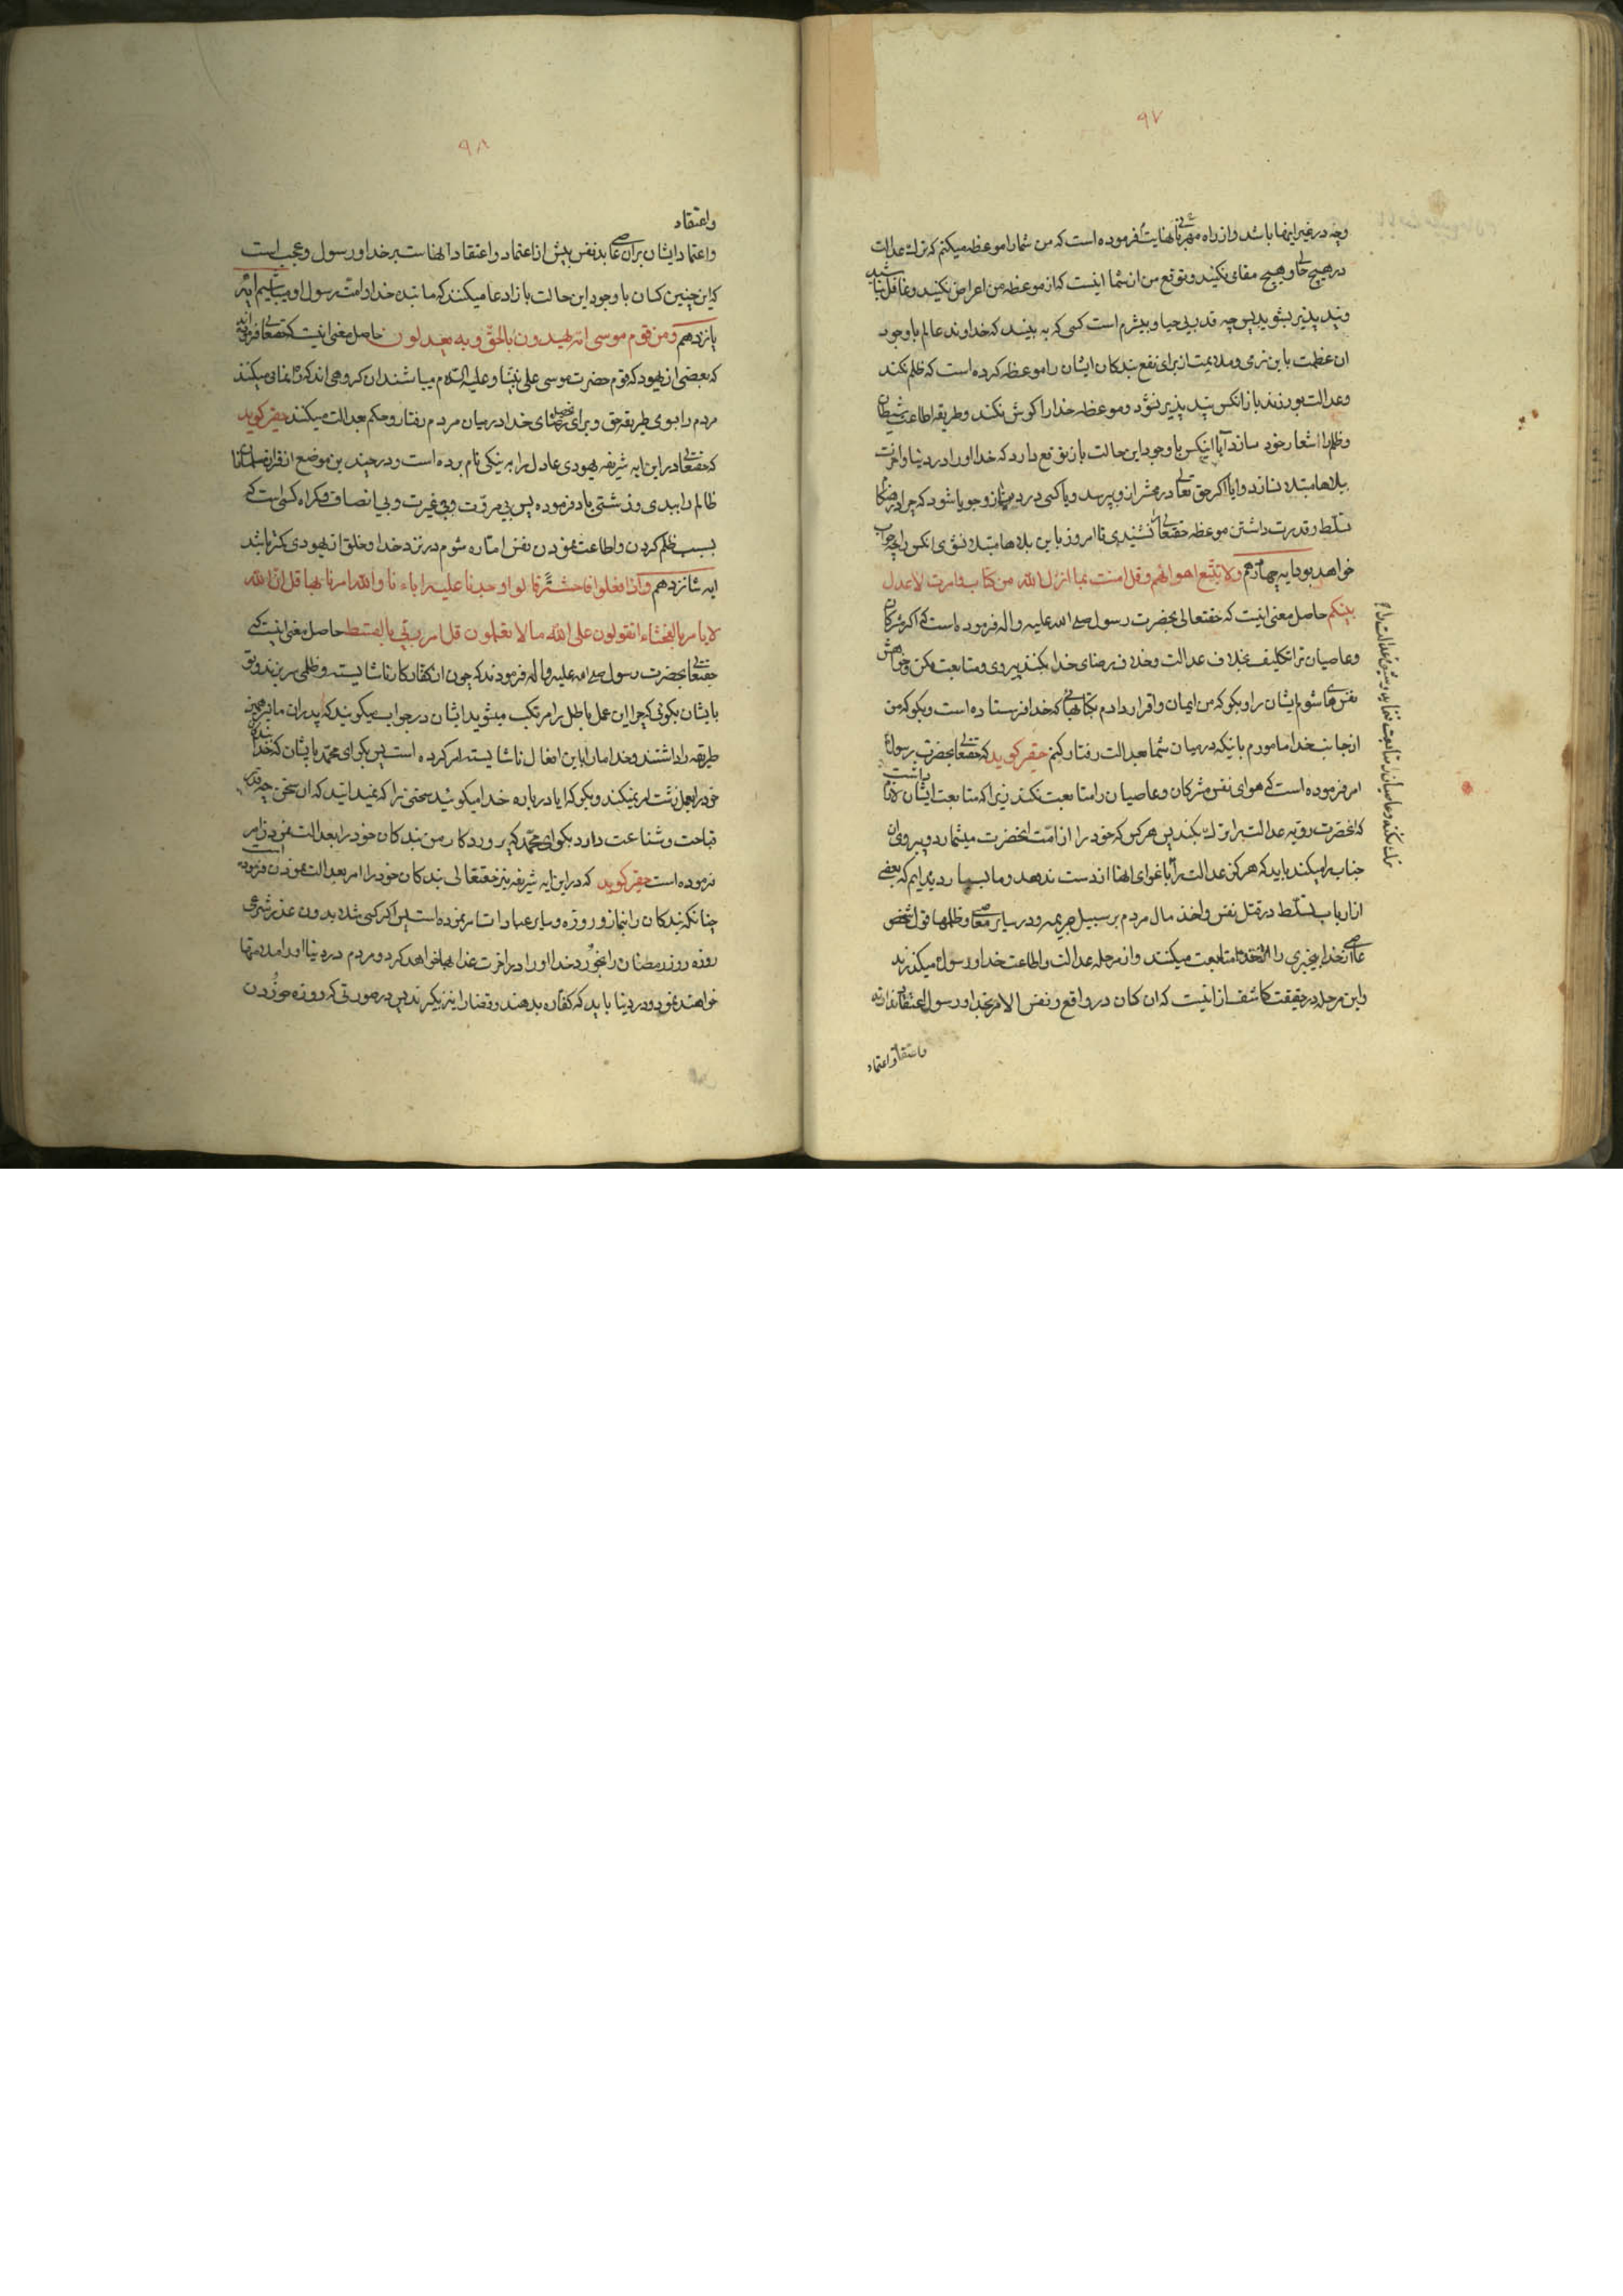 ۹۷
وچه در غیر اینها باشد و از راه مهربانی نهایت فرموده است که من شما را موعظه میکنم که ترک عدالت
در هیچ حالی و هیچ مقامی نکنید و توقع من از شما اینست که از موعظه من اعراض نکنید و غافل نباشید
و پند پذیر بشوید پس چه قدر بی حیا و بیشرم است کسی که به بیند که خداوند عالم با وجود
ان عظمت باین نرمی و ملایمت از برای نفع بندکان ایشان را موعظه کرده است که ظلم نکند
و عدالت بورزند باز انکس پند پذیر نشود و موعظه خدا را کوش نکند و طریقه اطاعت شیطان
و ظلم را شعار خود سازد آیا اینکس با وجود این حالت باز توقع دارد که خدا او را در دنیا و اخرت
ببلاها مبتلا نسازد و ایا اکر حق تعالی در محشر از او بپرسد و یا کسی در دنیا از و جویا شود که چرا در هنکام
تسلط و قدرت داشتن موعظه حقتعالی را نشنیدی تا امروز باین بلاها مبتلا نشوی انکس را چه جواب
خواهد بود ایه چهاردهم ولا تتبع اهوائهم و قل امنت بما انزل الله من کتاب و امرت لاعدل
بینکم حاصل معنی اینست که حقتعالی بحضرت رسول صلی الله علیه و اله فرموده است که اکر مشرکان
و عاصیان ترا تکلیف بخلاف عدالت و خلاف رضای خدا بکنند پیروی و متابعت مکن و خواهش
نفس های شوم ایشان را و بکو که من ایمان و اقرار دادم بکتابهائی که خدا فرستاده است و بکو که من
از جانب خدا مامورم باینکه در میان شما بعدالت رفتار کنم حقیر کوید که حقتعالی بحضرت رسول
امر فرموده است که هوای نفس مشرکان و عاصیان را متابعت نکند زیرا که متابعت ایشان باعث
که انحضرت رویه عدالت را ترک بکند پس هر کس که خود را از امت انحضرت میشمارد و پیروی ان
جناب را میکند باید که هرکز عدالت را باغوای انها از دست ندهد و ما بسیار دیده ایم که بعضی
از ارباب تسلط در قتل نفس و اخذ مال مردم بر سبیل جریمه و در سایر معاصی و ظلمها قول شخص
عاصی از خدا بیخبری را متابعت میکنند و از مرحله عدالت و اطاعت خدا و رسول میکذرند
و این مرحله در حقیقت کاشف از اینست که ان کسان در واقع و نفس الامر بخدا و رسول اعتقاد ندارند
واعتقاد واعتماد
۹۸
واعتقاد
و اعتماد ایشان بران عاصی بد نفس بیش از اعتماد و اعتقاد انهاست بر خدا و رسول و عجب است
که این چنین کسان با وجود این حالت باز ادعا میکنند که ما بنده خدا و امت رسول او میباشیم ایه
پانزدهم و من قوم موسی امة یهدون بالحق و به یعدلون حاصل معنی اینست که حقتعالی فرموده
که بعضی از یهود که قوم حضرت موسی علی نبینا و علیه السلام میباشند ان کروهی اند که راهنمائی میکنند
مردم را بسوی طریقه حق و برای رضای خدا در میان مردم رفتار و حکم بعدالت میکنند حقیر کوید
که حقتعالی در این ایه شریفه یهودی عادل را به نیکی نام برده است و در چندین موضع از قران
ظالم را ببدی و زشتی یاد فرموده پس بی مروت و بی غیرت و بی انصاف و کمراه کسی است که
بسبب ظلم کردن و اطاعت نمودن نفس اماره شوم در نزد خدا و خلق از یهودی کمتر باشد
ایه شانزدهم و اذا فعلوا فاحشة قالوا وجدنا علیها اباءنا والله امرنا بها قل ان الله
لا یامر بالفحشاء اتقولون علی الله ما لا تعلمون قل امر ربی بالقسط حاصل معنی اینست که
حقتعالی بحضرت رسول صلی الله علیه و اله فرمودند که چون از کفار کار ناشایسته و ظلمی سر بزند و تو
بایشان بکوئی که چرا این عمل باطل را مرتکب میشوید ایشان در جواب میکویند که پدران ما نیز همین
طریقه را داشتند و خدا ما را باین افعال ناشایسته امر کرده است پس بکو ای محمد بایشان که خدا بندکان
خود را بعمل زشت امر نمیکند و بکو که ایا در باره خدا میکوئید سخنی را که نمیدانید که ان سخن چه قدر
قباحت و شناعت دارد بکو ای محمد که پروردکار من بندکان خود را بعدالت نمودن امر
فرموده است حقیر کوید که در این ایه شریفه نیز حقتعالی بندکان خود را امر بعدالت نمودن فرموده است
چنانکه بندکان را بنماز و روزه و سایر عبادات امر نموده است پس اکر کسی بدون عذر شرعی
روزه روز رمضان را بخورد خدا او را در اخرت عذابها خواهد کرد و مردم در دنیا او را مذمتها
خواهند نمود و در دنیا باید که کفاره بدهند و قضا را نیز بکیرند پس در صورتی که روزه خوردن